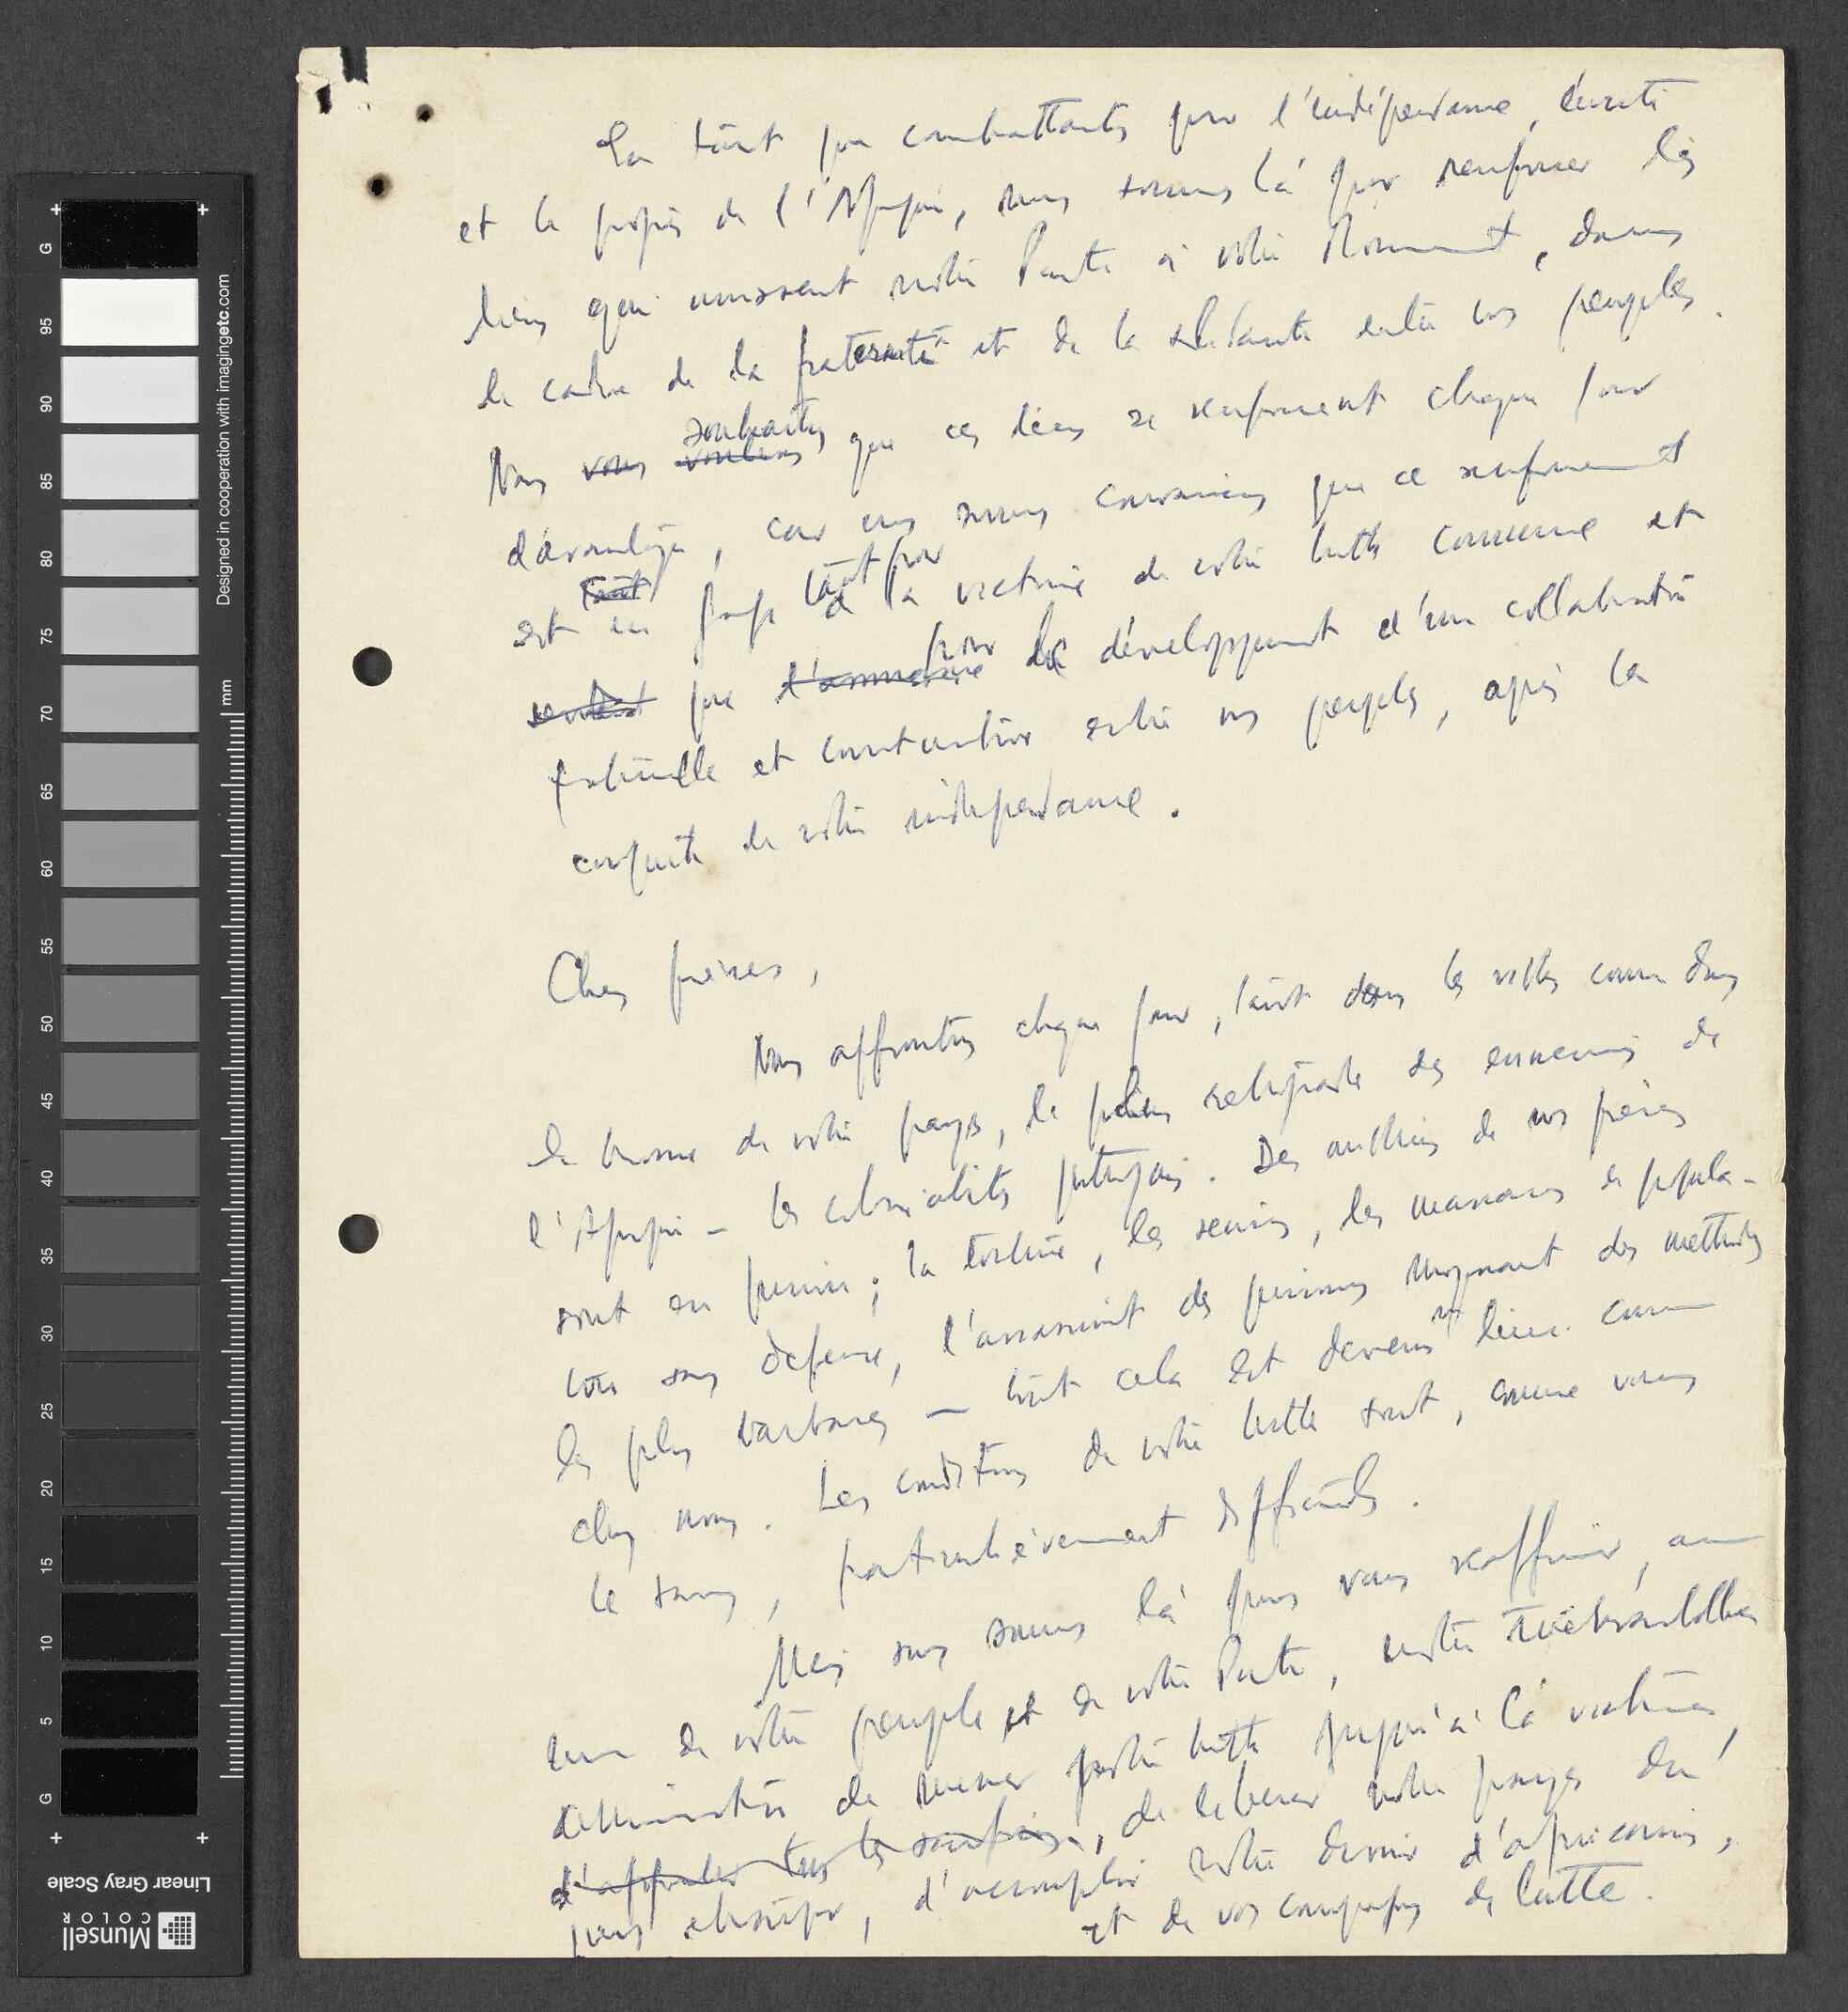 En tant que combattants pour l'indépendance, l'unité
et le progrès de l'Afrique, nous sommes là pour renforcer les
liens qui unissent notre Parti à votre Mouvement, dans
le cadre de la fraternité et de la solidarité entre nos peuples.
Nous vous voulons souhaitons que ces liens se renforcent chaque jour
davantage, car nous sommes convaincus que ce renforcement
est tant un gage tant pour la victoire de notre lutte commune et
que pour le développement d'une collaboration
fraternelle et constructive entre nos peuples, après la
conquête de notre indépendance.
Chers frères,
Nous affrontons chaque jour, tant dans les villes comme dans
la brousse de notre pays, le plus rétrograde des ennemis de
l'Afrique – les colonialistes portugais. Des milliers de nos frères
sont en prison; la torture, les sévices, les massacres de popula-
tions sans défense, l'assassinat des prisonniers moyennant des méthodes
les plus barbares – tout cela est devenu lieu commun
chez nous. Les conditions de notre lutte sont, comme vous
le savez, particulièrement difficiles.
Mais nous sommes là pour vous réaffirmer, au
nom de notre peuple et de notre Parti, notre inébranlable
détermination de mener notre lutte jusqu'à la victoire,
d'affronter tous les sacrifices, de libérer notre pays du
joug étranger, d'accomplir notre devoir d'africains,
et de vos compagnons de lutte.
G
95
90
85
80
75
70
65
60
55
50
45
40
35
30
25
20
15
10
5
G
mm
Designed in cooperation with imagingetc.com
Linear Gray Scale
Munsell
COLOR